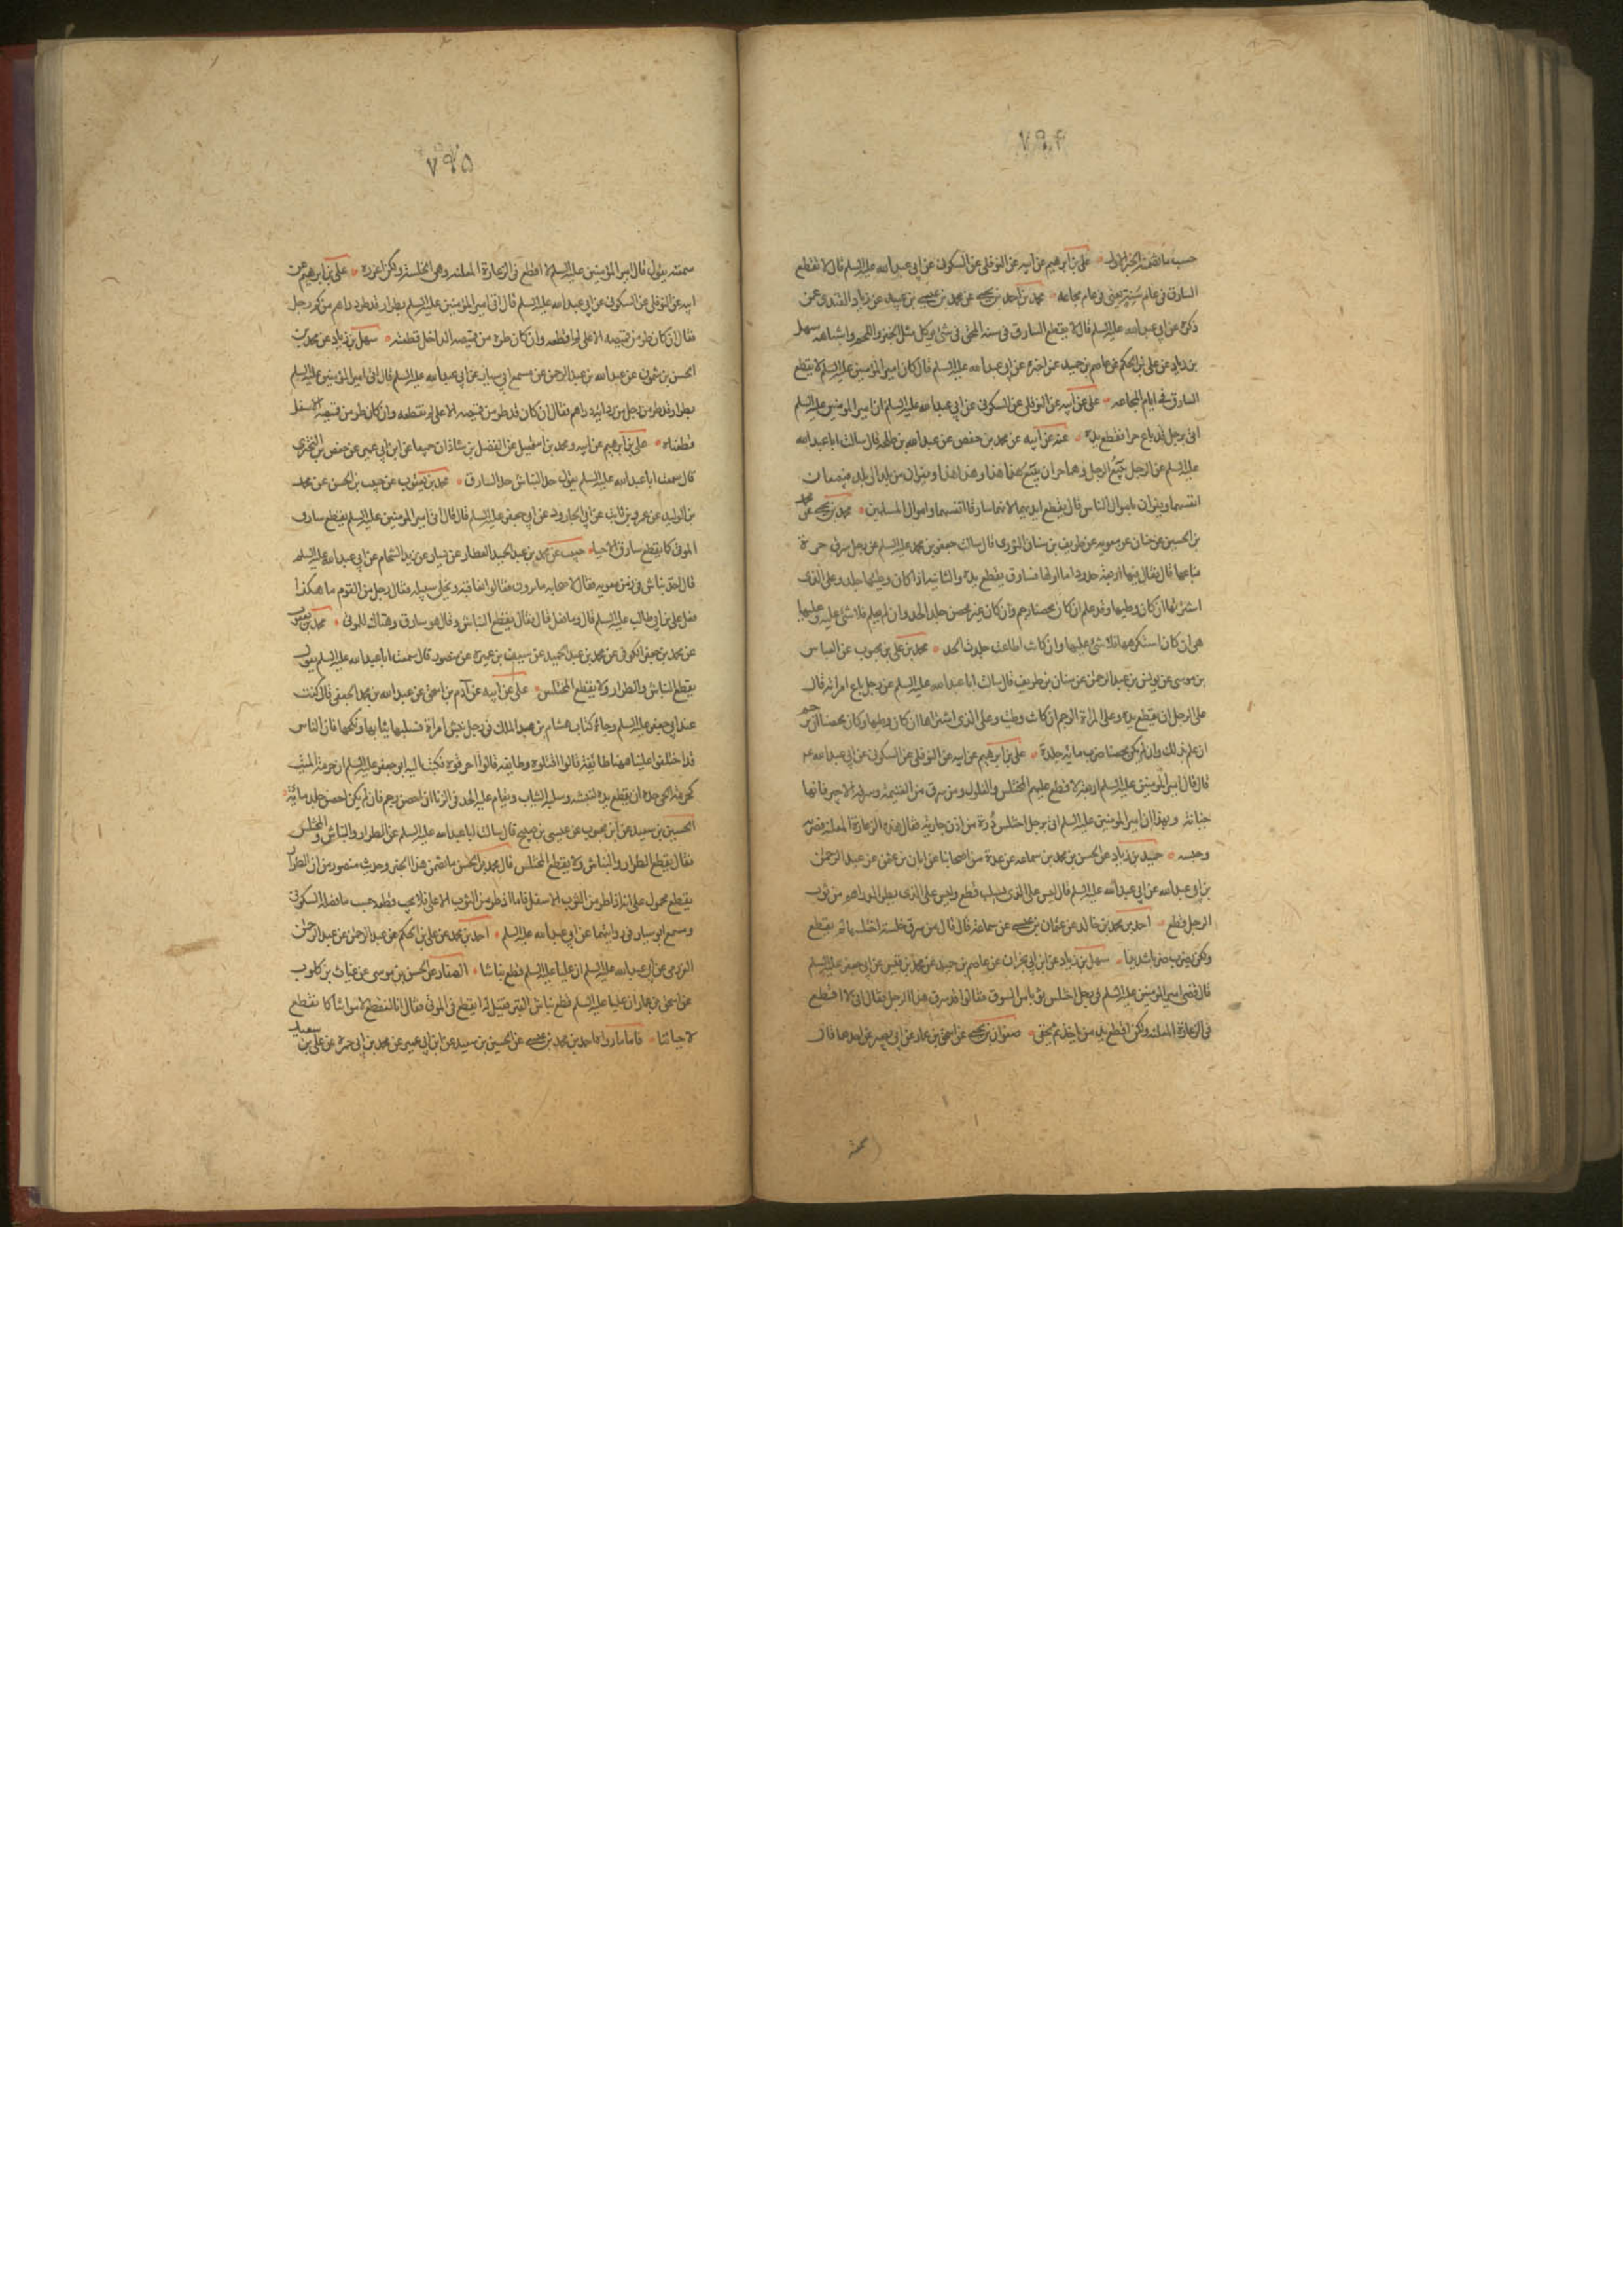 ٧٩۴
حسب ما تضمنه الخبر الاول علي بن ابرهيم عن ابيه عن النوفلي عن السكوني عن ابي عبد الله عليه السلم قال لا يقطع
السارق في عام سنة يعني في عام مجاعة محمد بن احمد بن يحيى عن محمد بن عيسى بن عبيد عن زياد القندي عمن
ذكره عن ابي عبد الله عليه السلم قال لا يقطع السارق في سنة المحق في شئ يؤكل مثل الخبز واللحم واشباهه سهل
بن زياد عن علي بن الحكم عن عاصم بن حميد عمن اخبره عن ابي عبد الله عليه السلم قال كان امير المؤمنين عليه السلم لا يقطع
السارق في ايام المجاعة علي عن ابيه عن النوفلي عن السكوني عن ابي عبد الله عليه السلم ان امير المؤمنين عليه السلم
اتي برجل قد باع حرا فقطع يده عنه عن ابيه عن محمد بن حفص عن عبد الله بن طلحة قال سالت ابا عبد الله
عليه السلم عن الرجل يبيع الرجل وهما حران يبيع هذا هذا وهذا هذا ويفران من بلد الى بلد فيبيعان
انفسهما ويفران باموال الناس قال يقطع ايديهما لانهما سارقا انفسهما واموال المسلمين محمد بن يحيى عن محمد
بن الحسين عن حنان عن معوية عن طريف بن سنان الثوري قال سالت جعفر بن محمد عليه السلم عن رجل سرق حرة
فباعها قال فقال فيها اربعة حدود اما اولها فسارق يقطع يده والثانية ان كان وطيها جلد وعلى الذي
اشتراها ان كان وطيها وقد علم ان كان محصنا رجم وان كان غير محصن جلد الحد وان لم يعلم فلا شئ عليه وعليها
هي ان كان استكرهها فلا شئ عليها وان كانت اطاعت جلدت الحد محمد بن علي بن محبوب عن العباس
بن موسى عن يونس بن عبد الرحمن عن سنان بن طريف قال سالت ابا عبد الله عليه السلم عن رجل باع امراته قال
على الرجل ان يقطع يده وعلى المراة الرجم ان كانت وطئت وعلى الذي اشتراها ان كان وطيها وكان محصنا ان يرجم
ان علم بذلك وان لم يكن محصنا ضرب مائة جلدة علي بن ابرهيم عن ابيه عن النوفلي عن السكوني عن ابي عبد الله ع
قال قال امير المؤمنين عليه السلم اربعة لا قطع عليهم المختلس والغلول ومن سرق من الغنيمة وسرقة الاجير فانها
خيانة وبهذا ان امير المؤمنين عليه السلم اتي برجل اختلس درة من اذن جارية فقال هذه الزعارة المعلنة فضربه
وحبسه حميد بن زياد عن الحسن بن محمد بن سماعة عن عدة من اصحابنا عن ابان بن عثمن عن عبد الرحمن
بن ابي عبد الله عن ابي عبد الله عليه السلم قال ليس على الذي يستلب قطع وليس على الذي يطر الدراهم من ثوب
الرجل قطع احمد بن محمد بن خالد عن عثمان بن عيسى عن سماعة قال قال من سرق خلسة اختلسها لم يقطع
ولكن يضرب ضربا شديدا سهل بن زياد عن ابن ابي نجران عن عاصم بن حميد عن محمد بن قيس عن ابي جعفر عليه السلم
قال قضى امير المؤمنين عليه السلم في رجل اختلس ثوبا من السوق فقالوا قد سرق هذا الرجل فقال اني لا اقطع
في الزعارة المعلنة ولكن اقطع يد من ياخذ ثم يخفي صفوان بن يحيى عن اسحق بن عمار عن ابي بصير عن احدهما قال
سمعته
٧٩۵
سمعته يقول قال امير المؤمنين عليه السلم لا اقطع في الزعارة المعلنة وهي الخلسة ولكن اعزره علي بن ابرهيم عن
ابيه عن النوفلي عن السكوني عن ابي عبد الله عليه السلم قال اتي امير المؤمنين عليه السلم بطرار قد طر دراهم من كم رجل
فقال ان كان طر من قميصه الاعلى لم اقطعه وان كان طر من قميصه الداخل قطعته سهل بن زياد عن محمد بن
الحسن بن شمون عن عبد الله بن عبد الرحمن عن مسمع ابي سيار عن ابي عبد الله عليه السلم قال اتي امير المؤمنين عليه السلم
بطرار قد طر من رجل من ردائه دراهم فقال ان كان قد طر من قميصه الاعلى لم نقطعه وان كان طر من قميصه الاسفل
قطعناه علي بن ابرهيم عن ابيه ومحمد بن اسمعيل عن الفضل بن شاذان جميعا عن ابن ابي عمير عن حفص بن البختري
قال سمعت ابا عبد الله عليه السلم يقول حد النباش حد السارق محمد بن يعقوب عن حبيب بن الحسن عن محمد
بن الوليد عن عمرو بن ثابت عن ابي الجارود عن ابي جعفر عليه السلم قال قال امير المؤمنين عليه السلم يقطع سارق
الموتى كما يقطع سارق الاحياء حبيب عن محمد بن عبد الحميد العطار عن سيار عن زيد الشحام عن ابي عبد الله عليه السلم
قال اخذ نباش في زمن معوية فقال لاصحابه ما ترون فقالوا نعاقبه ونخلي سبيله فقال رجل من القوم ما هكذا
فعل علي بن ابي طالب عليه السلم قال وما فعل قال فقال يقطع النباش وقال هو سارق وهتاك للموتى محمد بن يعقوب
عن محمد بن جعفر الكوفي عن محمد بن عبد الحميد عن سيف بن عميرة عن منصور قال سمعت ابا عبد الله عليه السلم يقول
يقطع النباش والطرار ولا يقطع المختلس علي عن ابيه عن آدم بن اسحق عن عبد الله بن محمد الجعفي قال كنت
عند ابي جعفر عليه السلم وجاءه كتاب هشام بن عبد الملك في رجل نبش امراة فسلبها ثيابها ونكحها فان الناس
قد اختلفوا علينا ههنا طائفة قالوا اقتلوه وطايفة قالوا احرقوه فكتب اليه ابو جعفر عليه السلم ان حرمة الميت
كحرمة الحي حده ان يقطع يده لنبشه وسلبه الثياب ويقام عليه الحد في الزنا ان احصن رجم فان لم يكن احصن جلد مائة
الحسين بن سعيد عن ابن محبوب عن عيسى بن صبيح قال سالت ابا عبد الله عليه السلم عن الطرار والنباش والمختلس
فقال يقطع الطرار والنباش ولا يقطع المختلس قال محمد بن الحسن ما تضمن هذا الخبر وحديث منصور من ان الطرار
يقطع محمول على انه اذا طر من الثوب الاسفل فاما اذا طر من الثوب الاعلى فلا يجب قطعه حسب ما فصله السكوني
ومسمع ابو سيار في روايتهما عن ابي عبد الله عليه السلم احمد بن محمد عن علي بن الحكم عن عبد الرحمن عن عبد الرحمن
العرزمي عن ابي عبد الله عليه السلم ان عليا عليه السلم قطع نباشا الصفار عن الحسن بن موسى عن غياث بن كلوب
عن اسحق بن عمار ان عليا عليه السلم قطع نباش القبر فقيل له اتقطع في الموتى فقال انا لنقطع لامواتنا كما نقطع
لاحيائنا فاما ما رواه احمد بن محمد بن عيسى عن الحسين بن سعيد عن ابن ابي عمير عن محمد بن ابي حمزة عن علي بن سعيد